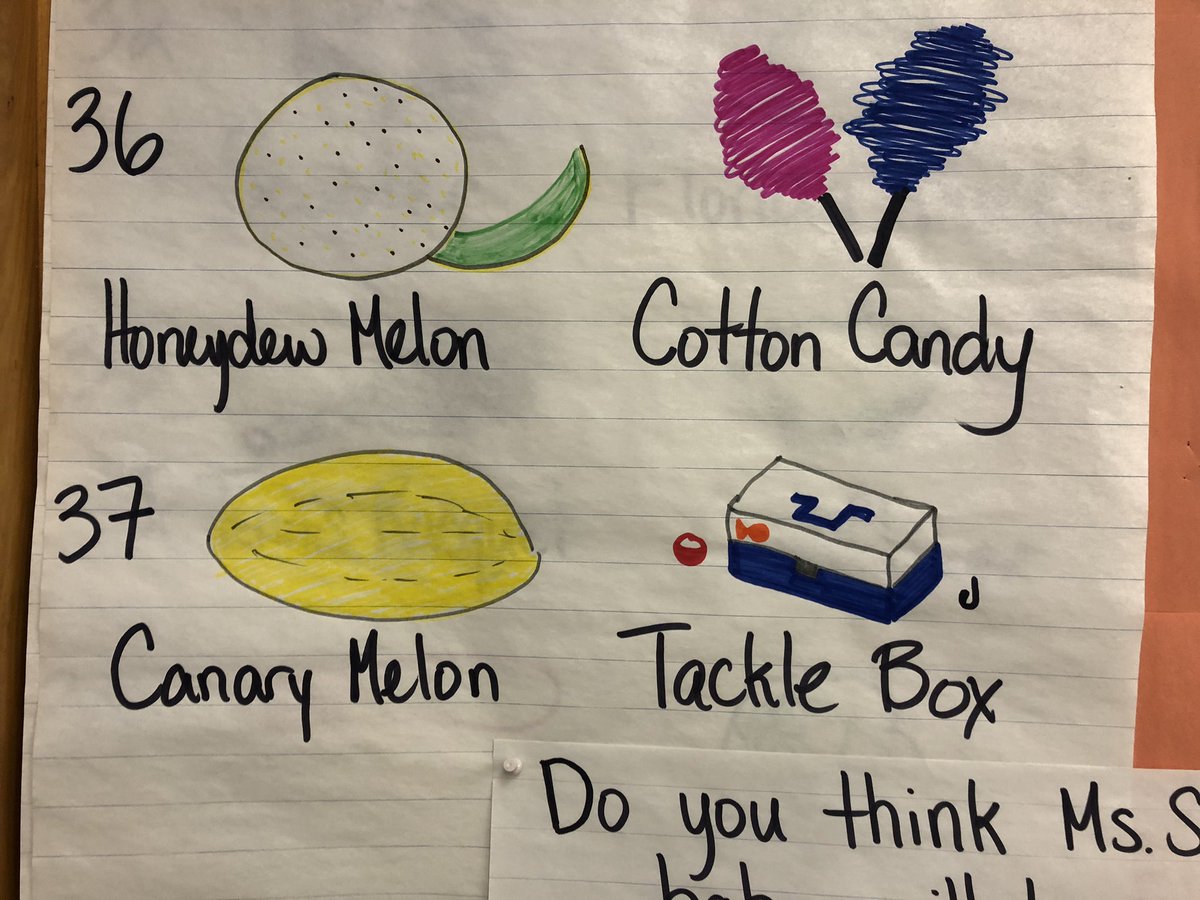 36
Honeydew Melon
Cotton Candy
37
Canary Melon
Tackle Box
Do you think Ms. S